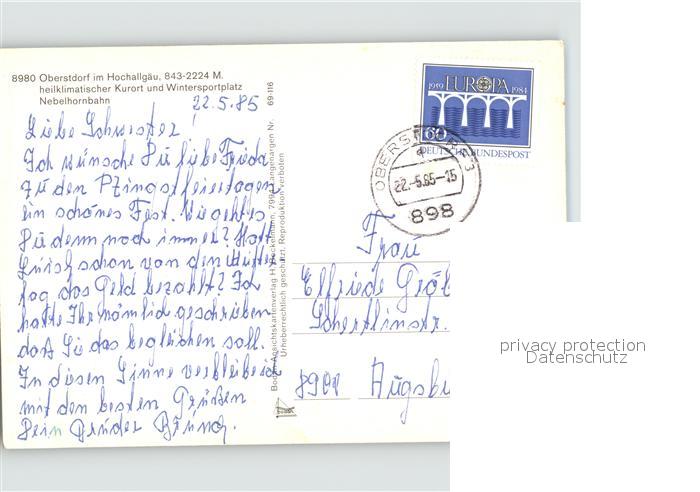 8980 Oberstdorf im Hochallgäu, 843-2224 M.
heilklimatischer Kurort und Wintersportplatz
Nebelhornbahn
22.5.85
Liebe Schwester!
Ich wünsche Du liebe Frieda
zu den Pfingstfeiertagen
ein schönes Fest. Wie geht es
Du denn noch immer? Hat
schon von den
das Geld bezahlt? Ich
hatte Ihr nämlich geschrieben
das Sie das begleichen soll.
In diesen Sinne verbleibe ich
mit den besten Grüßen
Dein Bruder
69-116
Urheberrechtlich geschützt. Reproduktion verboten
EUROPA
1959 1984
60
DEUTSCHE BUNDESPOST
OBERSTDORF 3
22.-5.85-15
898
Frau
Elfriede
Schertlinstr.
8900 Augsbu
privacy protection
Datenschutz